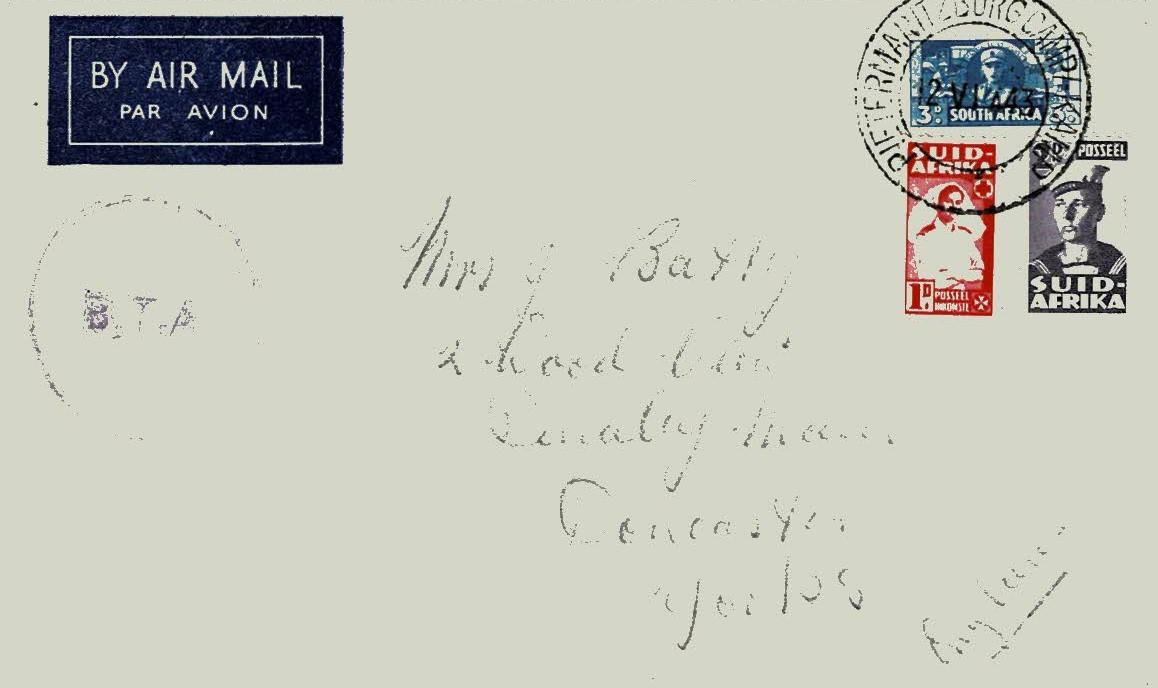 BY AIR MAIL
PAR AVION
PIETERMARITZBURG CAMP
12 VI 43
3D SOUTH AFRICA
SUID-
AFRIKA
1D POSSEEL
INKOMSTE
POSSEEL
SUID-
AFRIKA
B.T.A
Mrs J Baxty
2 Wood View
Denaby Main
Doncaster
Yorks
England